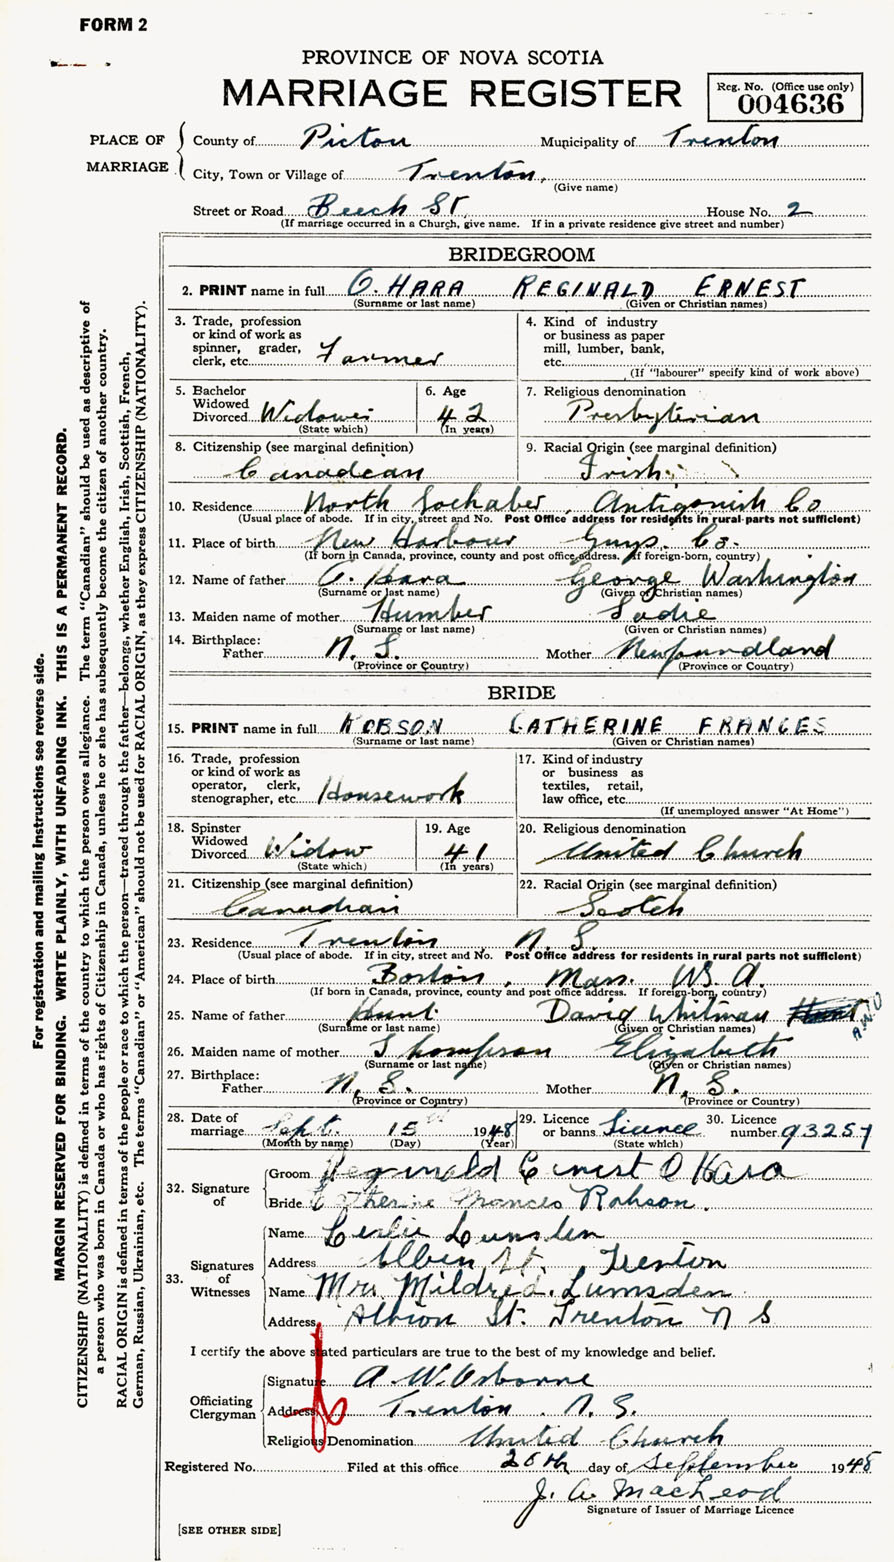 FORM 2
PROVINCE OF NOVA SCOTIA
MARRIAGE REGISTER
Reg. No. (Office use only)
004636
PLACE OF MARRIAGE
County of Pictou Municipality of Trenton
City, Town or Village of Trenton,
(Give name)
Street or Road Beech St. House No. 2
(If marriage occurred in a Church, give name. If in a private residence give street and number)
BRIDEGROOM
2. PRINT name in full O. HARA REGINALD ERNEST
(Surname or last name) (Given or Christian names)
3. Trade, profession or kind of work as spinner, grader, clerk, etc. Farmer
4. Kind of industry or business as paper mill, lumber, bank, etc.
(If "labourer" specify kind of work above)
5. Bachelor Widowed Divorced Widower
(State which)
6. Age 42
(In years)
7. Religious denomination
Presbyterian
8. Citizenship (see marginal definition)
Canadian
9. Racial Origin (see marginal definition)
Irish
10. Residence North Lochaber, Antigonish Co
(Usual place of abode. If in city, street and No. Post Office address for residents in rural parts not sufficient)
11. Place of birth New Harbour Guys. Co.
(If born in Canada, province, county and post office address. If foreign-born, country)
12. Name of father O. Hara George Washington
(Surname or last name) (Given or Christian names)
13. Maiden name of mother Humber Sadie
(Surname or last name) (Given or Christian names)
14. Birthplace:
Father N. S. Mother Newfoundland
(Province or Country) (Province or Country)
BRIDE
15. PRINT name in full ROBSON CATHERINE FRANCES
(Surname or last name) (Given or Christian names)
16. Trade, profession or kind of work as operator, clerk, stenographer, etc. Housework
17. Kind of industry or business as textiles, retail, law office, etc.
(If unemployed answer "At Home")
18. Spinster Widowed Divorced Widow
(State which)
19. Age 41
(In years)
20. Religious denomination
United Church
21. Citizenship (see marginal definition)
Canadian
22. Racial Origin (see marginal definition)
Scotch
23. Residence Trenton N. S.
(Usual place of abode. If in city, street and No. Post Office address for residents in rural parts not sufficient)
24. Place of birth Boston, Mass. U.S.A.
(If born in Canada, province, county and post office address. If foreign-born, country)
25. Name of father Hunt David Whitman
A.W.O
(Surname or last name) (Given or Christian names)
26. Maiden name of mother Thompson Elizabeth
(Surname or last name) (Given or Christian names)
27. Birthplace:
Father N. S. Mother N. S.
(Province or Country) (Province or Country)
28. Date of marriage Sept. 15th 1948
(Month by name) (Day) (Year)
29. Licence or banns Licence
(State which)
30. Licence number 93257
32. Signature of
Groom Reginald Ernest O Hara
Bride Catherine Frances Robson.
33. Signatures of Witnesses
Name Leslie Lumsden
Address Albion St. Trenton
Name Mrs. Mildred Lumsden
Address Albion St. Trenton N S
I certify the above stated particulars are true to the best of my knowledge and belief.
Officiating Clergyman
Signature A. W. Osborne
Address Trenton. N. S.
Religious Denomination United Church
Registered No. Filed at this office 20th day of September 1948
J. A. MacLeod
Signature of Issuer of Marriage Licence
[SEE OTHER SIDE]
For registration and mailing Instructions see reverse side.
MARGIN RESERVED FOR BINDING. WRITE PLAINLY, WITH UNFADING INK. THIS IS A PERMANENT RECORD.
CITIZENSHIP (NATIONALITY) is defined in terms of the country to which the person owes allegiance. The term "Canadian" should be used as descriptive of
a person who was born in Canada or who has rights of Citizenship in Canada, unless he or she has subsequently become the citizen of another country.
RACIAL ORIGIN is defined in terms of the people or race to which the person—traced through the father—belongs, whether English, Irish, Scottish, French,
German, Russian, Ukrainian, etc. The terms "Canadian" or "American" should not be used for RACIAL ORIGIN, as they express CITIZENSHIP (NATIONALITY).